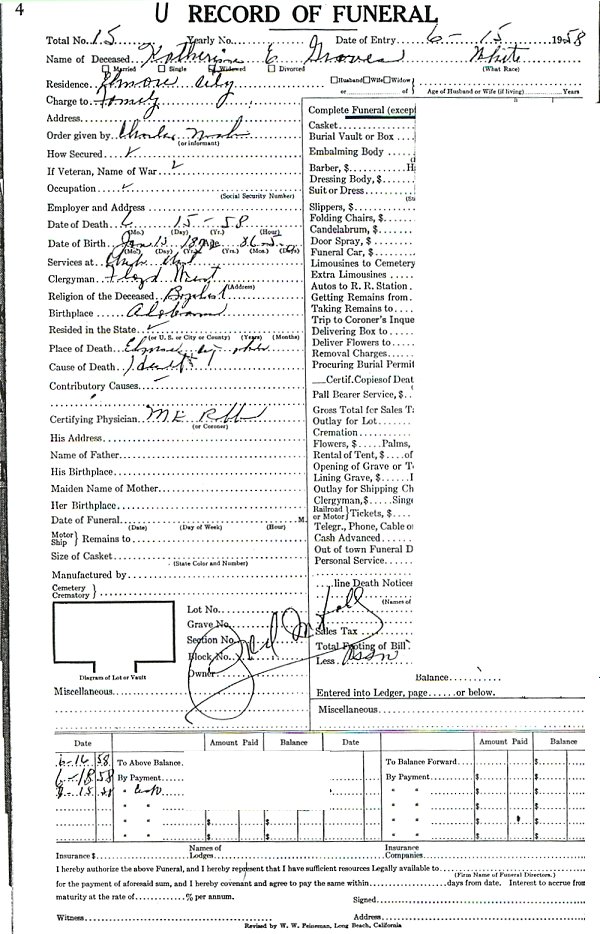 4
U RECORD OF FUNERAL
Total No. 15 Yearly No. Date of Entry 6- 15 1958
Name of Deceased Katherine E White
Married Single Widowed Divorced (What Race)
Residence Elmore City Husband Wife Widow
or of Age of Husband or Wife (if living) Years
Charge to Family
Complete Funeral (except
Address
Casket
Order given by Charles
Burial Vault or Box
(or informant)
How Secured
Embalming Body
If Veteran, Name of War
Barber, $ H
Dressing Body, $
Occupation
Suit or Dress
(Social Security Number)
Employer and Address
Slippers, $
Folding Chairs, $
Date of Death 6 15-58
(Mo.) (Day) (Yr.) (Hour)
Candelabrum, $
Date of Birth Jan 13 Age 86 5
(Mo.) (Day) (Yr.) (Yrs.) (Mos.) (Days)
Door Spray, $
Funeral Car, $
Services at
Limousines to Cemetery
Clergyman Floyd
(Address)
Extra Limousines
Autos to R. R. Station
Religion of the Deceased Baptist
Getting Remains from
Birthplace Alabama
Taking Remains to
Trip to Coroner's Inque
Resided in the State
(or U. S. or City or County) (Years) (Months)
Delivering Box to
Place of Death Elmore City Okla
Deliver Flowers to
Removal Charges
Cause of Death
Procuring Burial Permit
Contributory Causes
Certif. Copies of Deat
Pall Bearer Service, $
Certifying Physician M E
(or Coroner)
Gross Total for Sales T
Outlay for Lot
His Address
Cremation
Flowers, $ Palms,
Name of Father
Rental of Tent, $ of
His Birthplace
Opening of Grave or T
Lining Grave, $
Maiden Name of Mother
Outlay for Shipping Ch
Her Birthplace
Clergyman, $ Singe
Railroad or Motor Tickets, $
Date of Funeral M.
(Date) (Day of Week) (Hour)
Telegr., Phone, Cable o
Motor Ship Remains to
Cash Advanced
Out of town Funeral D
Size of Casket
(State Color and Number)
Personal Service
Manufactured by
line Death Notices
Cemetery
Crematory
(Names of
Lot No.
Grave No.
Section No.
Sales Tax
Block No.
Total Footing of Bill
Owner
Less
Diagram of Lot or Vault
Balance
Miscellaneous
Entered into Ledger, page or below.
Miscellaneous
Date Amount Paid Balance Date Amount Paid Balance
6-16 58 To Above Balance To Balance Forward $
6-18 58 By Payment By Payment $
" " " " $
" " " " $
" " $ $ " " $
" " $ $ " " $
Insurance $ Names of Lodges Insurance Companies
I hereby authorize the above Funeral, and I hereby represent that I have sufficient resources Legally available to
(Firm Name of Funeral Directors.)
for the payment of aforesaid sum, and I hereby covenant and agree to pay the same within days from date. Interest to accrue from
maturity at the rate of % per annum. Signed
Witness Address
Revised by W. W. Feineman, Long Beach, California